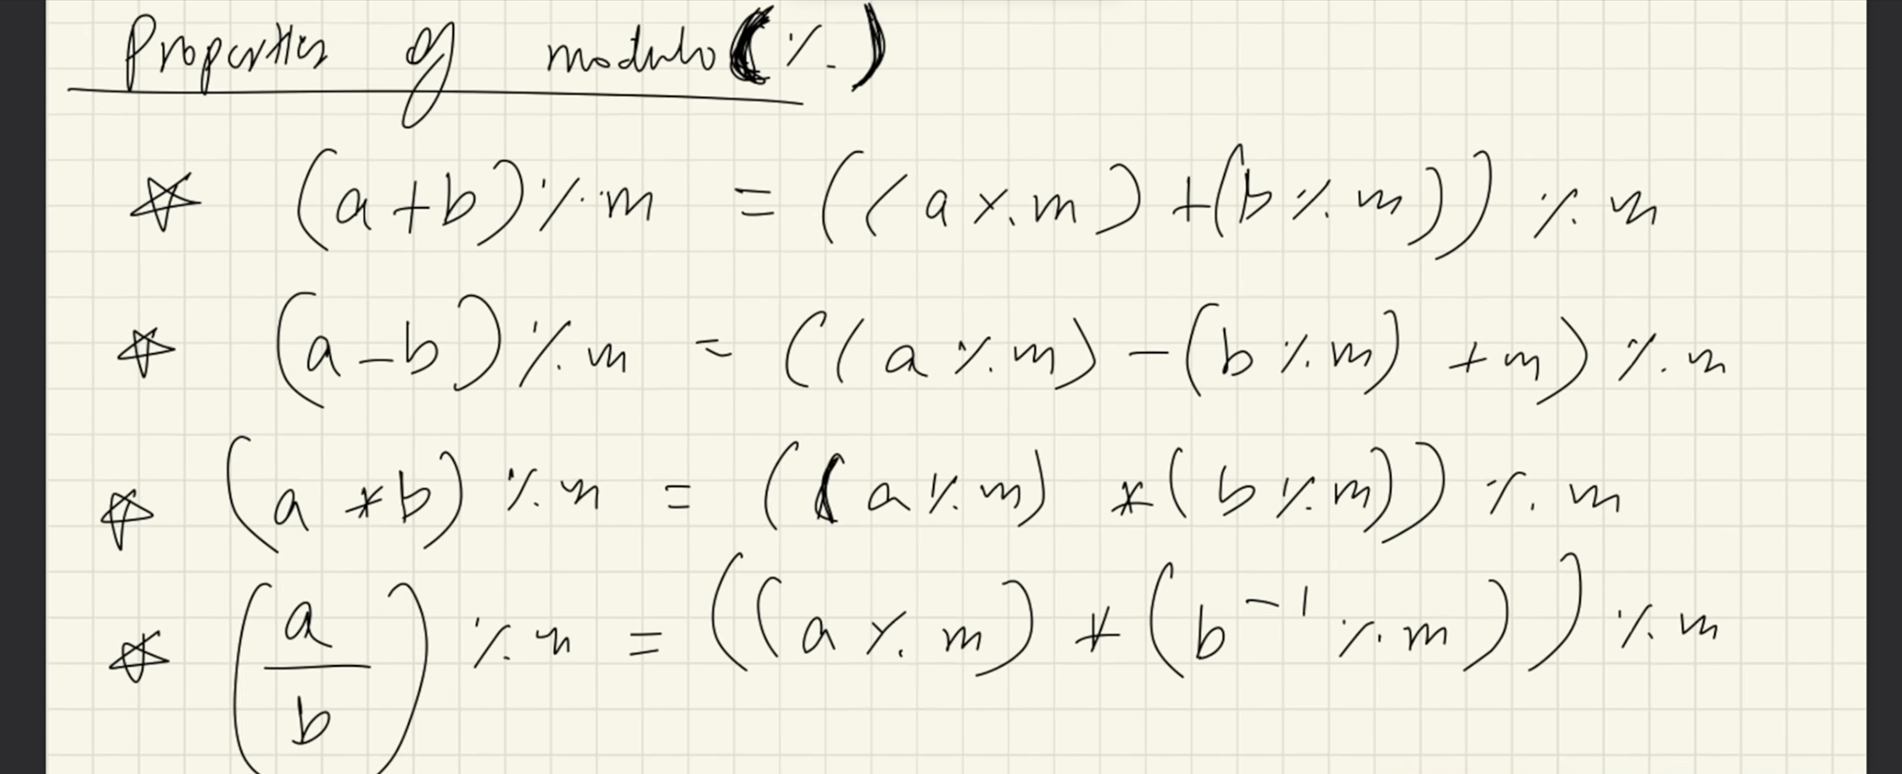 Properties of modulo (%)
☆ (a+b) % m = ((a % m) + (b % m)) % m
☆ (a-b) % m = ((a % m) - (b % m) + m) % m
☆ (a * b) % m = ((a % m) * (b % m)) % m
☆ (a/b) % m = ((a % m) * (b⁻¹ % m)) % m